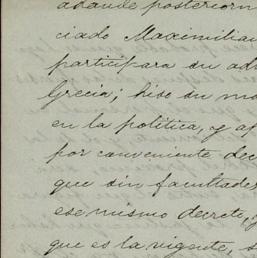 adande posteriorm
ciado Maximilian
participara su ad
Grecia; hiso su mo
en la politica, y a
por conveniente dec
que sin facultade
ese mismo decreto, y
que es la vigente, s